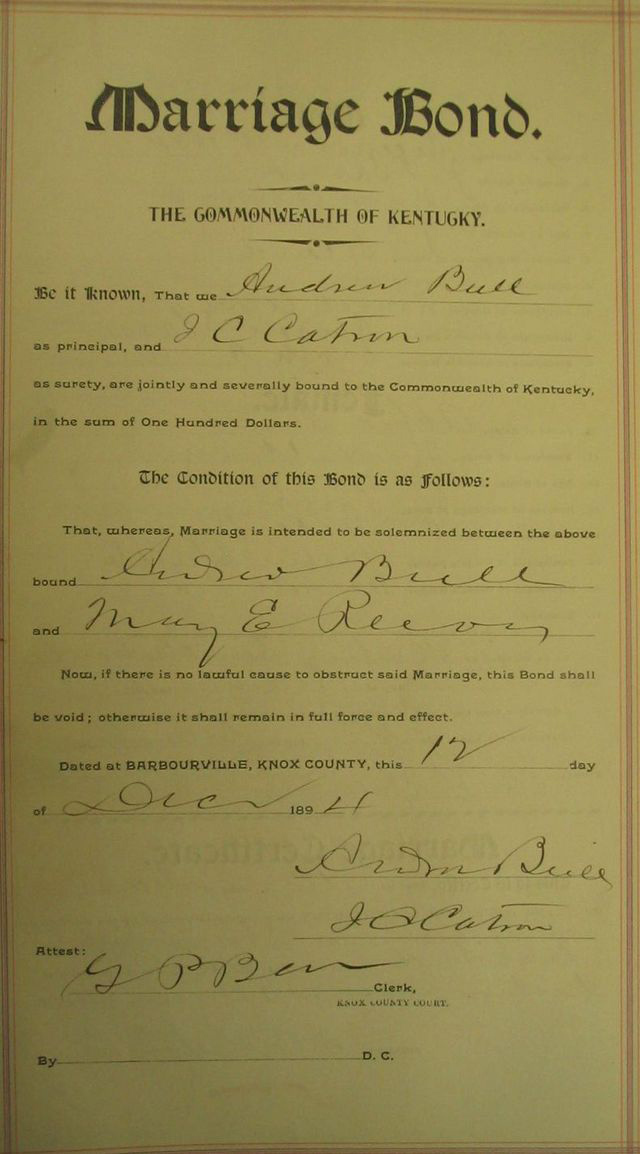 Marriage Bond.
THE COMMONWEALTH OF KENTUCKY.
Be it Known, That we Andrew Bull
as principal, and J C Catron
as surety, are jointly and severally bound to the Commonwealth of Kentucky,
in the sum of One Hundred Dollars.
The Condition of this Bond is as Follows:
That, whereas, Marriage is intended to be solemnized between the above
bound Andrew Bull
and Mary E
Now, if there is no lawful cause to obstruct said Marriage, this Bond shall
be void; otherwise it shall remain in full force and effect.
Dated at BARBOURVILLE, KNOX COUNTY, this 12 day
of Dec 1894
Andrew Bull
J C Catron
Attest:
G P Clerk,
KNOX COUNTY COURT.
By D. C.